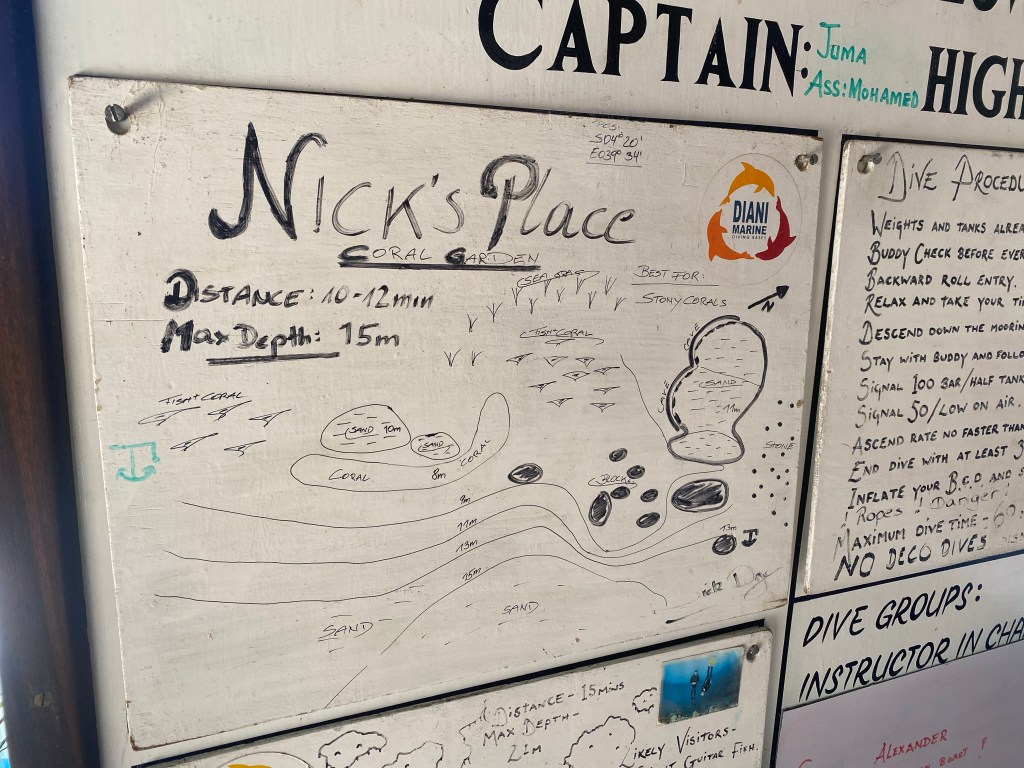 CAPTAIN:
JUMA
ASS:MOHAMED
HIGH
POS:
S04° 20'
E039° 34'
NICK'S PLACE
CORAL GARDEN
DISTANCE: 10-12min
MAX DEPTH: 15m
DIANI
MARINE
DIVING BASE
BEST FOR:
STONY CORALS
N
SEA GRASS
FISH+CORAL
FISH+CORAL
CAVE
CAVE
SAND
11m
SAND 10m
SAND
CORAL
8m
CORAL
STONE
BLOCKS
9m
11m
13m
15m
13m
SAND
SAND
DIVE PROCEDU
WEIGHTS AND TANKS ALREA
BUDDY CHECK BEFORE EVER
BACKWARD ROLL ENTRY.
RELAX AND TAKE YOUR TI
DESCEND DOWN THE MOORIN
STAY WITH BUDDY AND FOLLO
SIGNAL 100 BAR/HALF TANK
SIGNAL 50/LOW ON AIR.
ASCEND RATE NO FASTER THAN
END DIVE WITH AT LEAST 3
INFLATE YOUR B.C.D. AND S
! ROPES ! DANGER!
MAXIMUM DIVE TIME - 60
NO DECO DIVES
DIVE GROUPS:
INSTRUCTOR IN CHA
ALEXANDER
DISTANCE - 15MINS
MAX DEPTH-
21m
IKELY VISITORS-
GUITAR FISH.